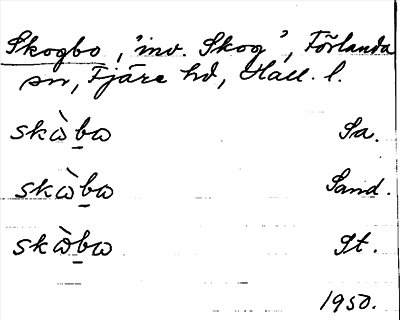 Skogbo, "inv. Skog", Förlanda
sn, Fjäre hd, Hall. l.
skὼba Sa.
skὼba Sand.
skὼba St.
1950.